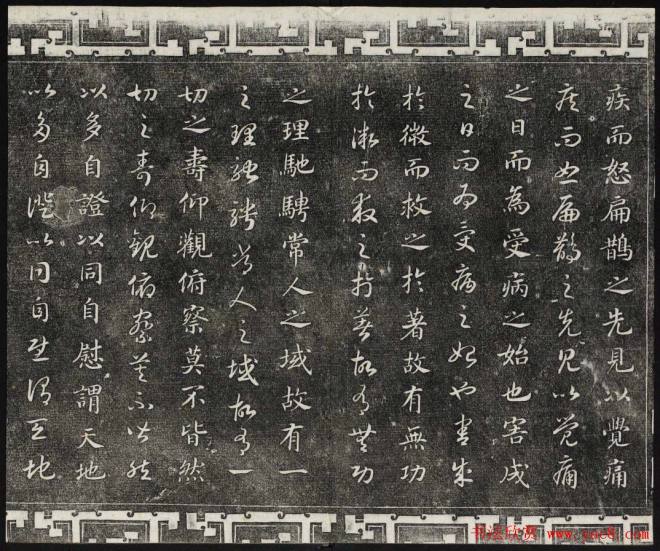 疾而怒扁鵲之先見以覺痛
疾而怒扁鵲之先見以覺痛
之日而為受病之始也害成
之日而為受病之始也害成
於微而救之於著故有無功
於微而救之於著故有無功
之理馳騁常人之域故有一
之理馳騁常人之域故有一
切之壽仰觀俯察莫不皆然
切之壽仰觀俯察莫不皆然
以多自證以同自慰謂天地
以多自證以同自慰謂天地
书法欣赏 www.yac8.com